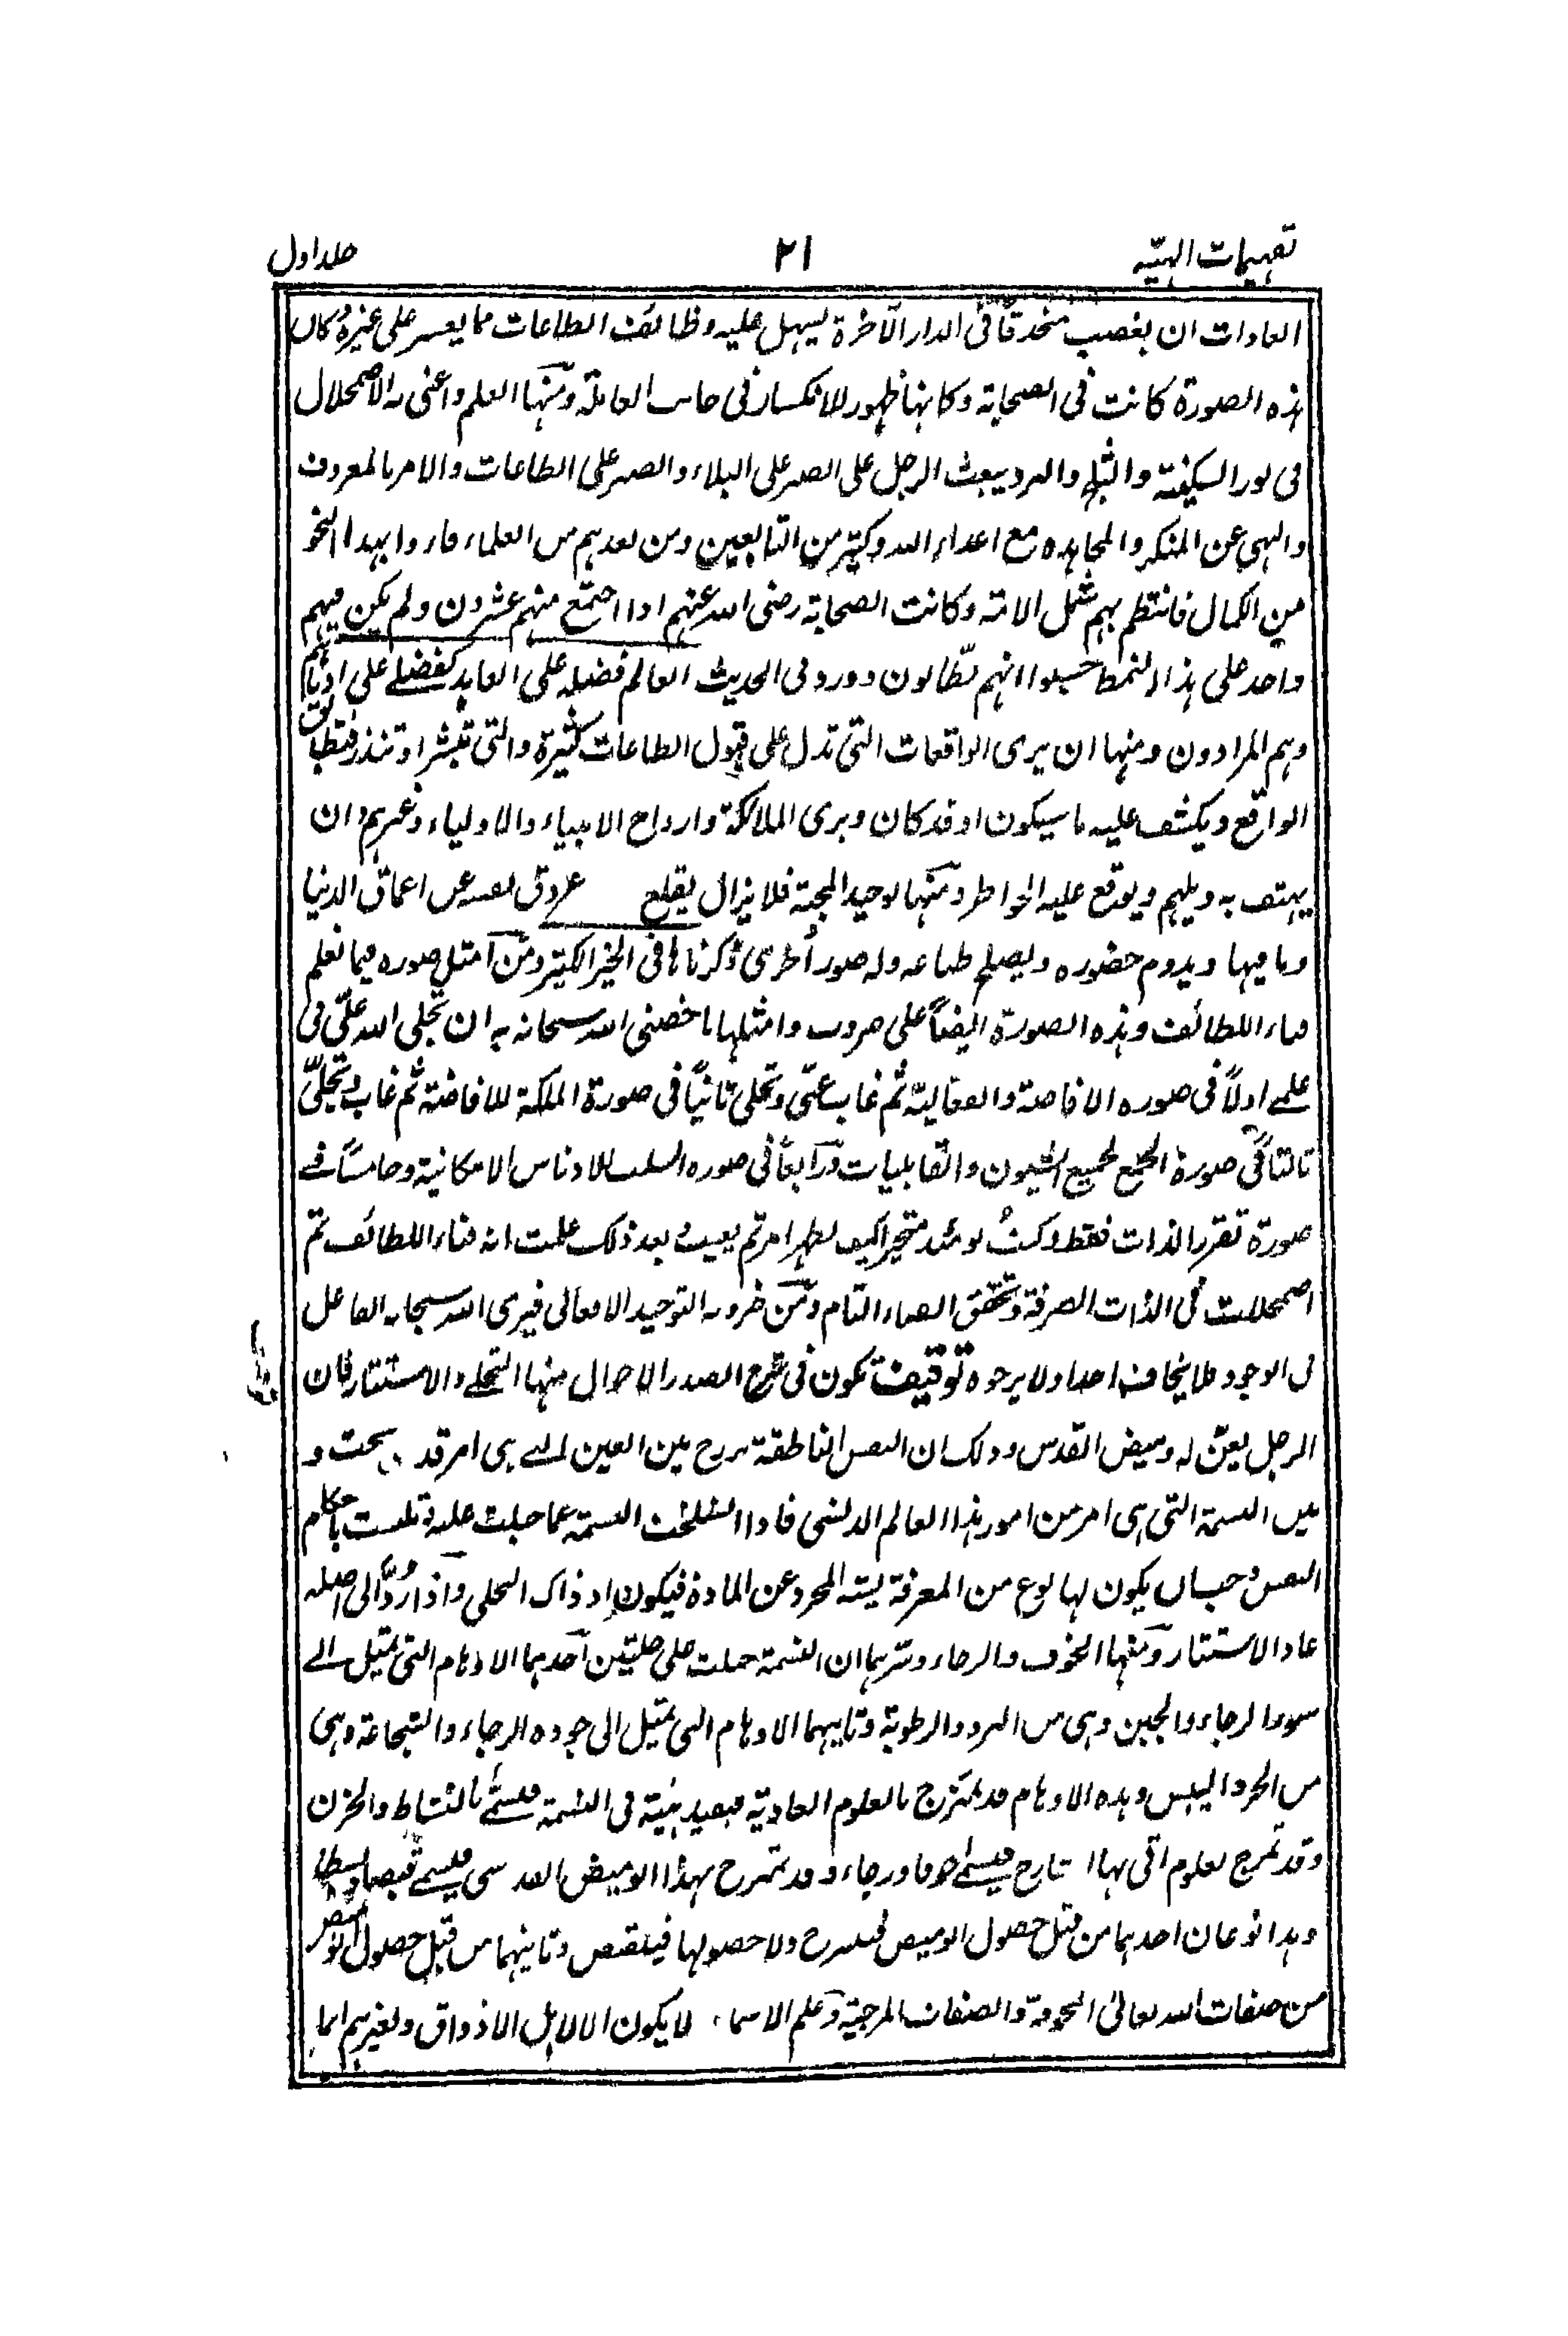 تفهيمات الهيّه ٢١ جلد اول
العادات ان بغصب منخدقًا فى الدار الآخرة ليسهل عليه وظائف الطاعات مما يعسر على غيره وكان
هذه الصورة كانت فى الصحابة وكانها ظهور للانكسار فى جانب العاملة ومنها العلم واعنى به الاضمحلال
فى نور السكينة والثلج والبرد يبعث الرجل على الصبر على البلاء والصبر على الطاعات والامر بالمعروف
والنهى عن المنكر والمجاهده مع اعداء الله وكثير من التابعين ومن بعدهم من العلماء فازوا بهذا النحو
من الكمال فانتظم بهم شمل الامة وكانت الصحابة رضى الله عنهم اذا اجتمع منهم عشرون ولم يكن فيهم
واحد على هذا النمط حسبوا انهم بطّالون وورد فى الحديث العالم فضله على العابد كفضلے على ادناكم
وهم المرادون ومنها ان يرى الواقعات التى تدل على قبول الطاعات كثيرة والتى تبشر او تنذر فتطابق
الواقع ويكشف عليه ما سيكون او قد كان ويرى الملائكة وارواح الانبياء والاولياء وغيرهم وان
يهتف به ويلهم ويوقع عليه الخواطر ومنها توحيد المحبة فلا يزال يقلع عروق نفسه عن اعماق الدنيا
وما فيها ويدوم حضوره ويصلح طباعه وله صور اُخرى ذكرناها فى الخير الكثير ومن امثل صوره فيما نعلم
فناء اللطائف وهذه الصورة ايضاً على ضروب وامثلها ما خصنى الله سبحانه به ان تجلى الله علىّ فى
علمے اولاً فى صوره الافاضة والفعالية ثم غاب عنّى وتجلى ثانيًا فى صورة الملكة للافاضة ثم غاب وتجلىّ
ثالثاً فى صورة الجمع لجميع الشيون والقابليات ورابعاً فى صوره السلب للادناس الامكانية وخامسًا فے
صورة تقرر الذات فقط وكنتُ يومئذ متحيرا كيف يظهر امر ثم يغيب وبعد ذلك علمت انه فناء اللطائف ثم
اضمحللت فى الذات الصرفة وتحقق الفناء التام ومن ضروبه التوحيد الافعالى فيرى الله سبحانه الفاعل
فى الوجود فلا يخاف احدا ولا يرجوه توقيف تكون فى شرح الصدر الاحوال منها التجلے والاستتار فان
الرجل يعنّ له وميض القدس وذلك ان النفس الناطقة برزخ بين العين التے هى امر قد بحت و
بين النسمة التى هى امر من امور هذا العالم الدنسى فاذا انسلخت النسمة عما جبلت عليه وتلبست باحكام
النفس وجب ان يكون لها نوع من المعرفة يشبه المجرد عن المادة فيكون اذ ذاك التجلى واذا رُدّ الى اصله
عاد الاستتار ومنها الخوف والرجاء وسرهما ان النسمة جبلت على جبلتين احدهما الاوهام التى تميل الے
سوء الرجاء والجبن وهى من البرد والرطوبة وثانيهما الاوهام التى تميل الى جوده الرجاء والشجاعة وهى
من الحر واليبس وهذه الاوهام قد تمتزج بالعلوم العادية فيفيد هيئة فى النسمة فيسمّے بالنشاط والحزن
وقد تمزج بعلوم اتى بها الشارع فيسمے خوفا ورجاء وقد تمتزج بهذا الوميض القدسى فيسمے قبضا وبسطا
وهذا نوعان احدهما من قبل حصول الوميض فينشرح ولا حصولها فينقبض وثانيهما من قبل حصول التبصر
من صفات الله تعالى المخوفة والصفات المرجية وعلم الاسماء لا يكون الا لاهل الاذواق ولغيرهم انما